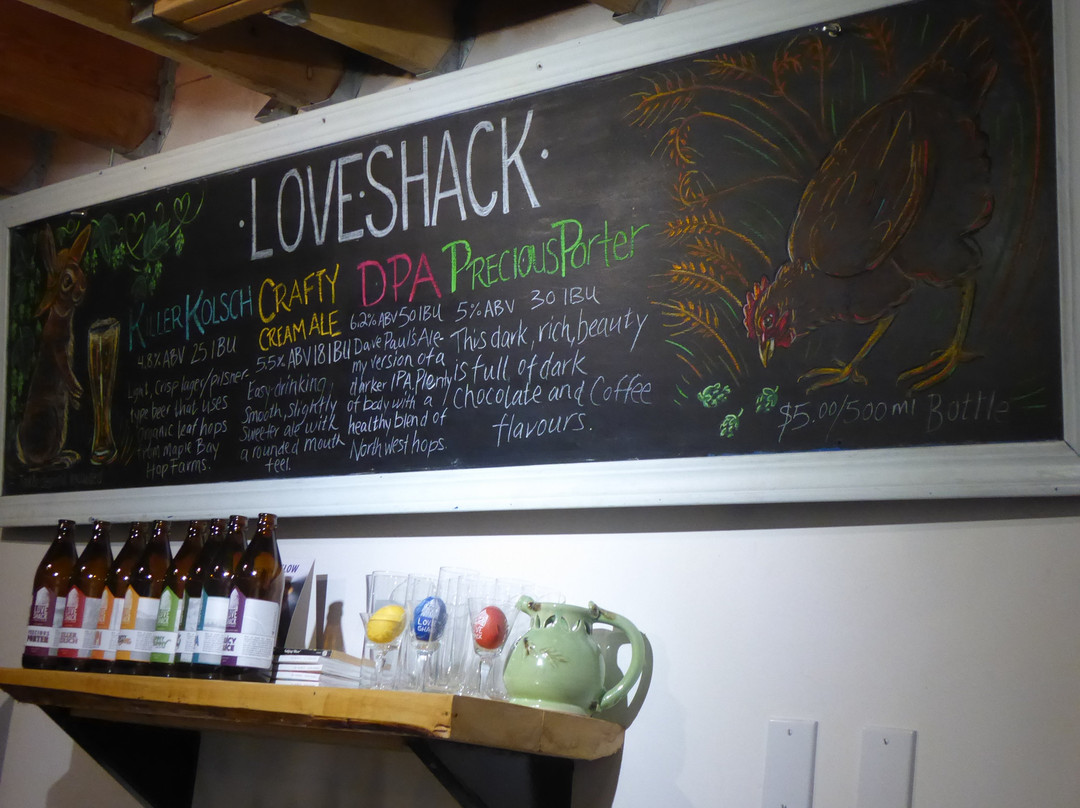 ·LOVE·SHACK·
KILLER KOLSCH
4.8% ABV 25 IBU
Light, Crisp lager/pilsner
type beer that uses
Organic leaf hops
from Maple Bay
Hop Farms.
CRAFTY
CREAM ALE
5.5% ABV 18 IBU
Easy-drinking,
Smooth, slightly
Sweeter ale with
a rounded mouth
feel.
DPA
6.2% ABV 50 IBU
Dave Paul's Ale-
my version of a
darker IPA. Plenty
of body with a
healthy blend of
Northwest hops.
PRECIOUS Porter
5% ABV 30 IBU
This dark, rich, beauty
is full of dark
chocolate and Coffee
flavours.
$5.00/500ml Bottle
LOVE
SHACK
PORTER
LOVE
SHACK
LOVE
SHACK
LOVE